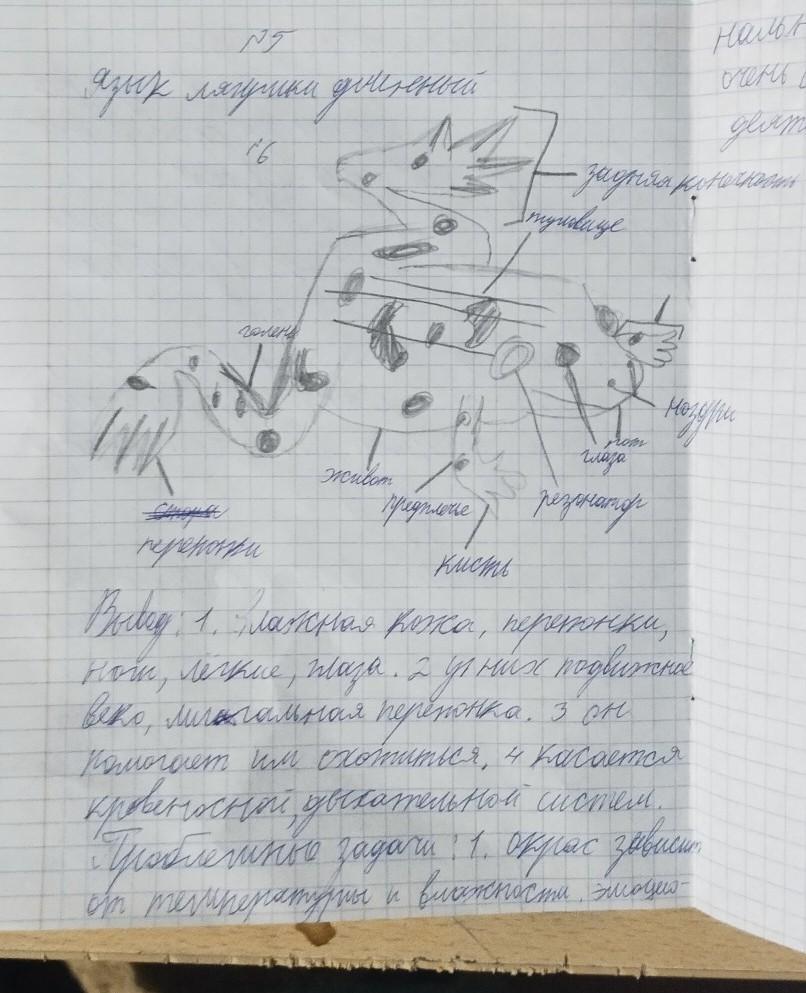 №5
Язык лягушки длинный
№6
задняя конечность
туловище
голень
ноздри
рот
глаза
живот
предплечье
резонатор
перепонки
кисть
Вывод: 1. Влажная кожа, перепонки,
ноги, лёгкие, глаза. 2 у них подвижное
веко, мигальная перепонка. 3 он
помогает им охотиться. 4 касается
кровеносной, дыхательной систем.
Проблемные задачи: 1. окрас зависит
от температуры и влажности. эмоцио-
нальн
очень
деят